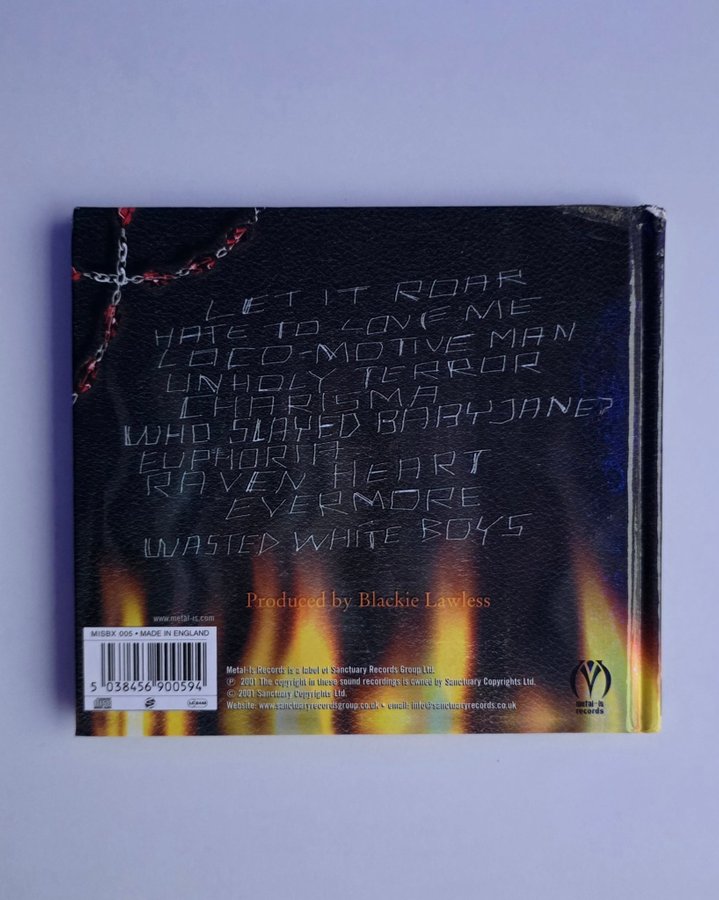 LET IT ROAR
HATE TO LOVE ME
LOCO-MOTIVE MAN
UNHOLY TERROR
CHARISMA
WHO SLAYED BABY JANE?
EUPHORIA
RAVEN HEART
EVERMORE
WASTED WHITE BOYS
Produced by Blackie Lawless
www.metal-is.com
MISBX 005 • MADE IN ENGLAND
5 038456 900594
Metal-Is Records is a label of Sanctuary Records Group Ltd.
℗ 2001 The copyright in these sound recordings is owned by Sanctuary Copyrights Ltd.
© 2001 Sanctuary Copyrights Ltd.
Website: www.sanctuaryrecordsgroup.co.uk • email: info@sanctuaryrecords.co.uk
metal-is
records